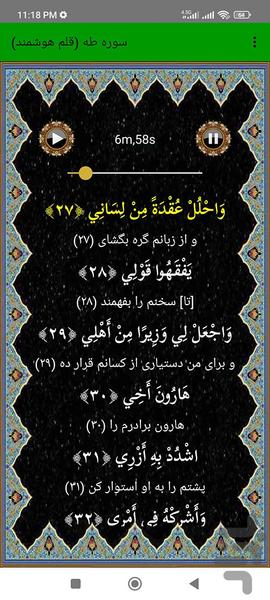 11:18 PM
4.5G
64
سوره طه (قلم هوشمند)
6m,58s
وَاحْلُلْ عُقْدَةً مِنْ لِسَانِي ﴿۲۷﴾
و از زبانم گره بگشای (۲۷)
يَفْقَهُوا قَوْلِي ﴿۲۸﴾
[تا] سخنم را بفهمند (۲۸)
وَاجْعَلْ لِي وَزِيرًا مِنْ أَهْلِي ﴿۲۹﴾
و برای من دستیاری از کسانم قرار ده (۲۹)
هَارُونَ أَخِي ﴿۳۰﴾
هارون برادرم را (۳۰)
اشْدُدْ بِهِ أَزْرِي ﴿۳۱﴾
پشتم را به او استوار کن (۳۱)
وَأَشْرِكْهُ فِي أَمْرِي ﴿۳۲﴾